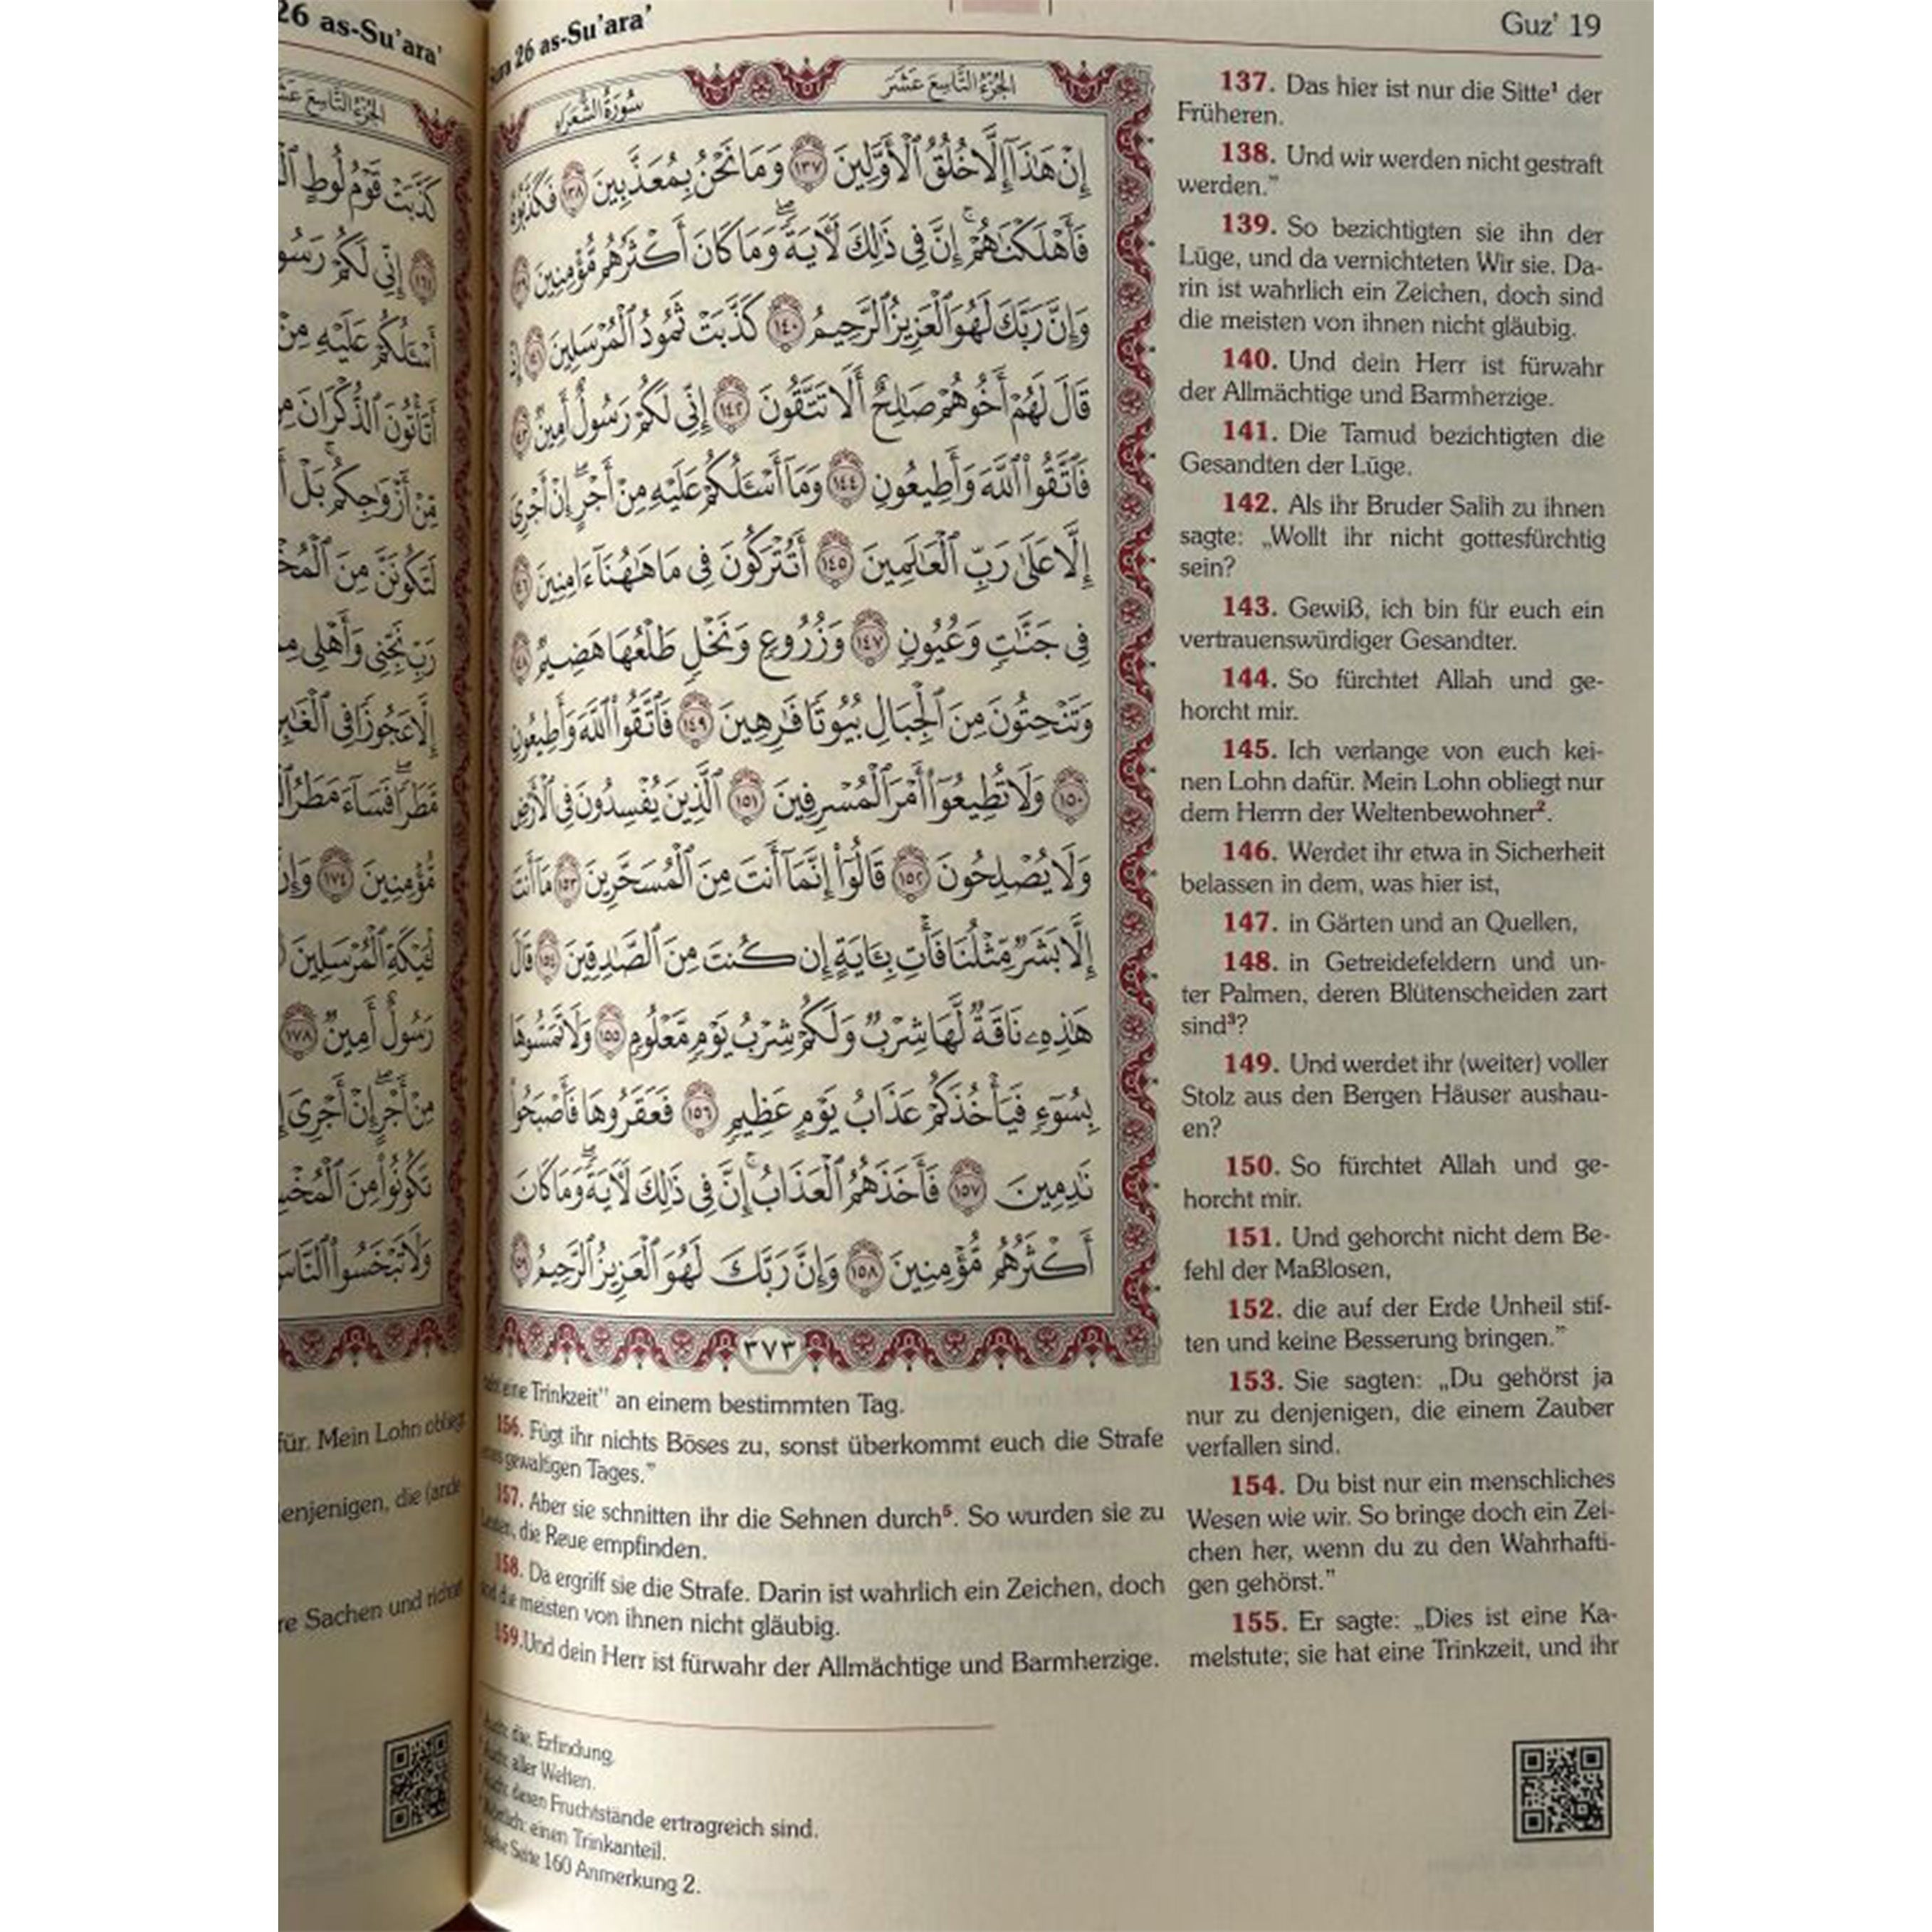 26 as-Su'ara'
الجزء التاسع عش
كَذَّبَتْ قَوْمُ لُوطٍ
١٦١ إِنِّى لَكُمْ رَسُو
أَسْـَٔلُكُمْ عَلَيْهِ مِنْ
أَتَأْتُونَ ٱلذُّكْرَانَ مِ
مِّنْ أَزْوَٰجِكُم بَلْ أَ
لَتَكُونَنَّ مِنَ ٱلْمُخْ
رَبِّ نَجِّنِى وَأَهْلِى مِ
إِلَّا عَجُوزًا فِى ٱلْغَٰبِرِ
مَّطَرًا فَسَآءَ مَطَرُ ٱلْ
مُّؤْمِنِينَ ١٧٤ وَإِنَّ
لْـَٔيْكَةِ ٱلْمُرْسَلِينَ
رَسُولٌ أَمِينٌ ١٧٨
مِنْ أَجْرٍ إِنْ أَجْرِىَ إِ
تَكُونُوا۟ مِنَ ٱلْمُخْسِ
وَلَا تَبْخَسُوا۟ ٱلنَّاسَ
für. Mein Lohn obliegt
enjenigen, die (ande
re Sachen und richtet
26 as-Su'ara'
Guz' 19
سُورَةُ الشُّعَرَاءِ
الجُزْءُ التَّاسِعَ عَشَرَ
إِنْ هَٰذَآ إِلَّا خُلُقُ ٱلْأَوَّلِينَ ١٣٧ وَمَا نَحْنُ بِمُعَذَّبِينَ ١٣٨ فَكَذَّبُوهُ
فَأَهْلَكْنَٰهُمْ إِنَّ فِى ذَٰلِكَ لَـَٔايَةً وَمَا كَانَ أَكْثَرُهُم مُّؤْمِنِينَ ١٣٩
وَإِنَّ رَبَّكَ لَهُوَ ٱلْعَزِيزُ ٱلرَّحِيمُ ١٤٠ كَذَّبَتْ ثَمُودُ ٱلْمُرْسَلِينَ ١٤١ إِذْ
قَالَ لَهُمْ أَخُوهُمْ صَٰلِحٌ أَلَا تَتَّقُونَ ١٤٢ إِنِّى لَكُمْ رَسُولٌ أَمِينٌ ١٤٣
فَٱتَّقُوا۟ ٱللَّهَ وَأَطِيعُونِ ١٤٤ وَمَآ أَسْـَٔلُكُمْ عَلَيْهِ مِنْ أَجْرٍ إِنْ أَجْرِىَ
إِلَّا عَلَىٰ رَبِّ ٱلْعَٰلَمِينَ ١٤٥ أَتُتْرَكُونَ فِى مَا هَٰهُنَآ ءَامِنِينَ ١٤٦
فِى جَنَّٰتٍ وَعُيُونٍ ١٤٧ وَزُرُوعٍ وَنَخْلٍ طَلْعُهَا هَضِيمٌ ١٤٨
وَتَنْحِتُونَ مِنَ ٱلْجِبَالِ بُيُوتًا فَٰرِهِينَ ١٤٩ فَٱتَّقُوا۟ ٱللَّهَ وَأَطِيعُونِ
١٥٠ وَلَا تُطِيعُوٓا۟ أَمْرَ ٱلْمُسْرِفِينَ ١٥١ ٱلَّذِينَ يُفْسِدُونَ فِى ٱلْأَرْضِ
وَلَا يُصْلِحُونَ ١٥٢ قَالُوٓا۟ إِنَّمَآ أَنتَ مِنَ ٱلْمُسَحَّرِينَ ١٥٣ مَآ أَنتَ
إِلَّا بَشَرٌ مِّثْلُنَا فَأْتِ بِـَٔايَةٍ إِن كُنتَ مِنَ ٱلصَّٰدِقِينَ ١٥٤ قَالَ
هَٰذِهِۦ نَاقَةٌ لَّهَا شِرْبٌ وَلَكُمْ شِرْبُ يَوْمٍ مَّعْلُومٍ ١٥٥ وَلَا تَمَسُّوهَا
بِسُوٓءٍ فَيَأْخُذَكُمْ عَذَابُ يَوْمٍ عَظِيمٍ ١٥٦ فَعَقَرُوهَا فَأَصْبَحُوا۟
نَٰدِمِينَ ١٥٧ فَأَخَذَهُمُ ٱلْعَذَابُ إِنَّ فِى ذَٰلِكَ لَـَٔايَةً وَمَا كَانَ
أَكْثَرُهُم مُّؤْمِنِينَ ١٥٨ وَإِنَّ رَبَّكَ لَهُوَ ٱلْعَزِيزُ ٱلرَّحِيمُ ١٥٩
٣٧٣
137. Das hier ist nur die Sitte¹ der
Früheren.
138. Und wir werden nicht gestraft
werden."
139. So bezichtigten sie ihn der
Lüge, und da vernichteten Wir sie. Da-
rin ist wahrlich ein Zeichen, doch sind
die meisten von ihnen nicht gläubig.
140. Und dein Herr ist fürwahr
der Allmächtige und Barmherzige.
141. Die Tamud bezichtigten die
Gesandten der Lüge.
142. Als ihr Bruder Salih zu ihnen
sagte: „Wollt ihr nicht gottesfürchtig
sein?
143. Gewiß, ich bin für euch ein
vertrauenswürdiger Gesandter.
144. So fürchtet Allah und ge-
horcht mir.
145. Ich verlange von euch kei-
nen Lohn dafür. Mein Lohn obliegt nur
dem Herrn der Weltenbewohner².
146. Werdet ihr etwa in Sicherheit
belassen in dem, was hier ist,
147. in Gärten und an Quellen,
148. in Getreidefeldern und un-
ter Palmen, deren Blütenscheiden zart
sind³?
149. Und werdet ihr (weiter) voller
Stolz aus den Bergen Häuser aushau-
en?
150. So fürchtet Allah und ge-
horcht mir.
151. Und gehorcht nicht dem Be-
fehl der Maßlosen,
152. die auf der Erde Unheil stif-
ten und keine Besserung bringen."
153. Sie sagten: „Du gehörst ja
nur zu denjenigen, die einem Zauber
verfallen sind.
154. Du bist nur ein menschliches
Wesen wie wir. So bringe doch ein Zei-
chen her, wenn du zu den Wahrhafti-
gen gehörst."
155. Er sagte: „Dies ist eine Ka-
melstute; sie hat eine Trinkzeit, und ihr
eine Trinkzeit" an einem bestimmten Tag.
156. Fügt ihr nichts Böses zu, sonst überkommt euch die Strafe
gewaltigen Tages."
157. Aber sie schnitten ihr die Sehnen durch⁵. So wurden sie zu
die Reue empfinden.
158. Da ergriff sie die Strafe. Darin ist wahrlich ein Zeichen, doch
die meisten von ihnen nicht gläubig.
159.Und dein Herr ist fürwahr der Allmächtige und Barmherzige.
Auch: die Erfindung.
Auch: aller Welten.
Auch: deren Fruchtstände ertragreich sind.
Wörtlich: einen Trinkanteil.
Siehe Seite 160 Anmerkung 2.